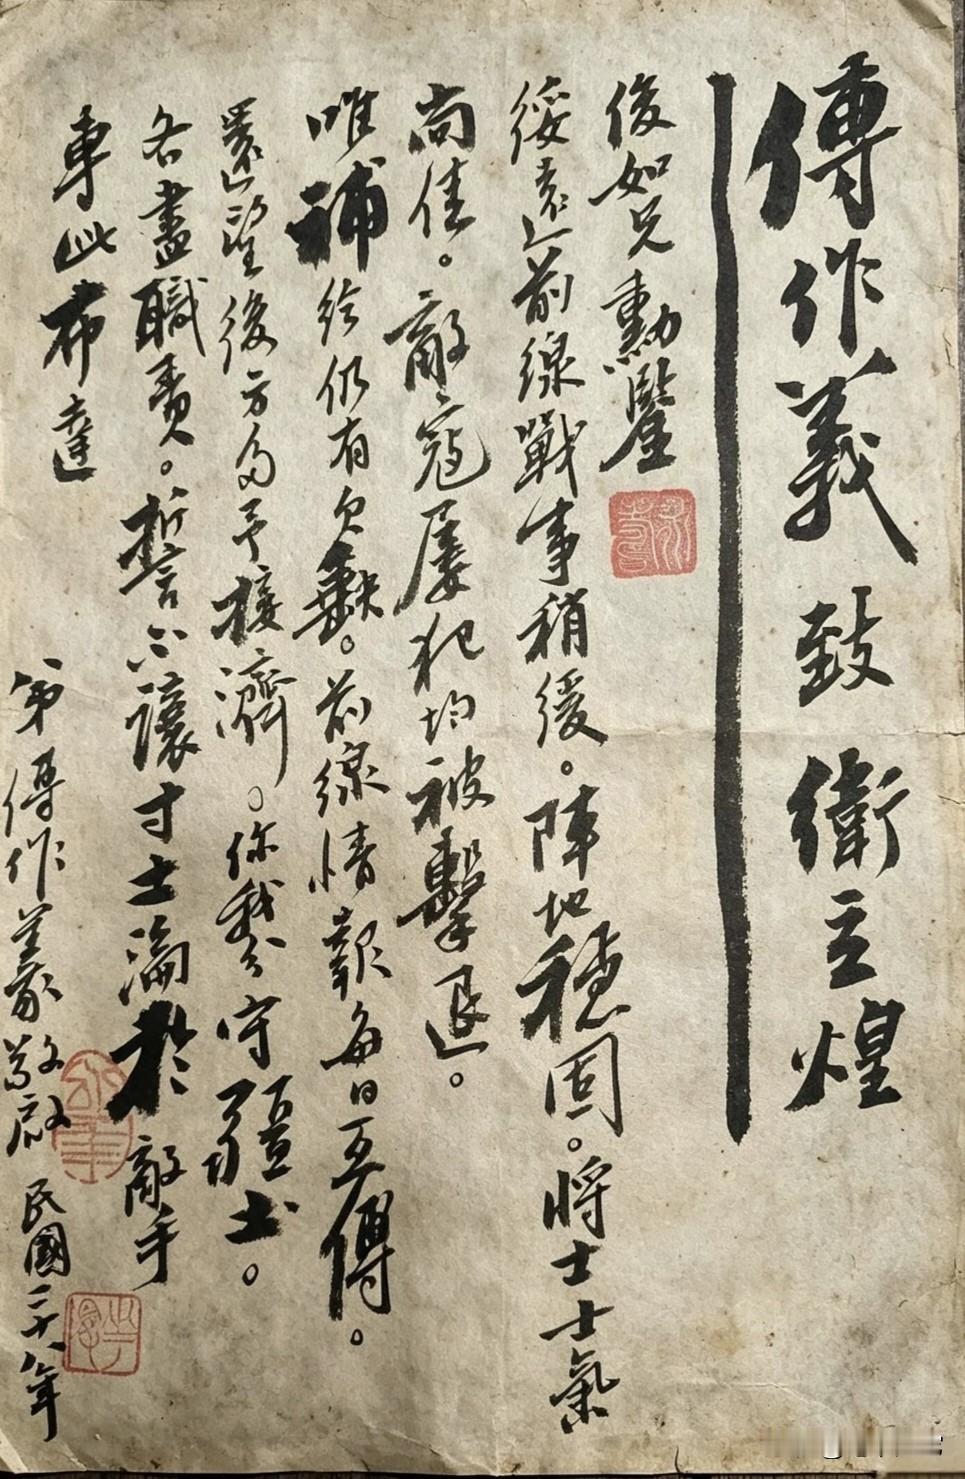 傅作義致衛立煌
俊如兄勳鑒
綏遠前線戰事稍緩。陣地穩固。將士士氣
尚佳。敵寇屢犯均被擊退。
唯補給仍有欠缺。前線情報每日互傳。
還望後方多予接濟。你我分守疆土。
各盡職責。誓不讓寸土淪於敵手
專此布達
弟傅作義敬啟 民國二十八年